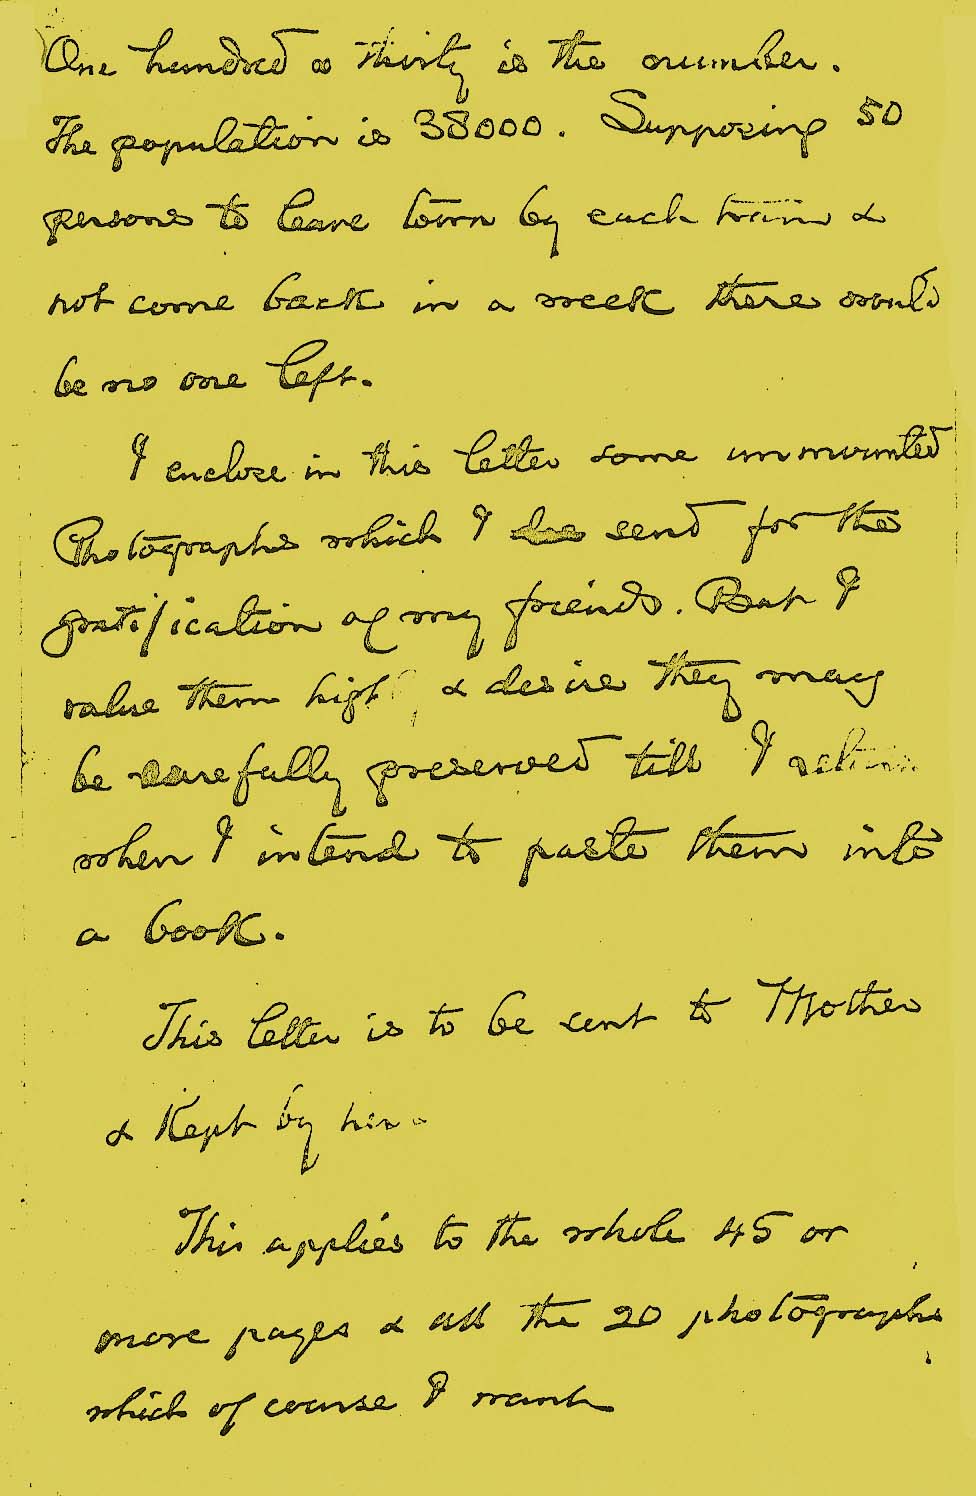 One hundred & thirty is the number.
The population is 38000. Supposing 50
persons to leave town by each train &
not come back in a week there would
be no one left.
I enclose in this letter some unmounted
Photographs which I send for the
gratification of my friends. But I
value them highly & desire they may
be carefully preserved till I return
when I intend to paste them into
a book.
This letter is to be sent to Mother
& Kept by her.
This applies to the whole 45 or
more pages & all the 20 photographs
which of course I want